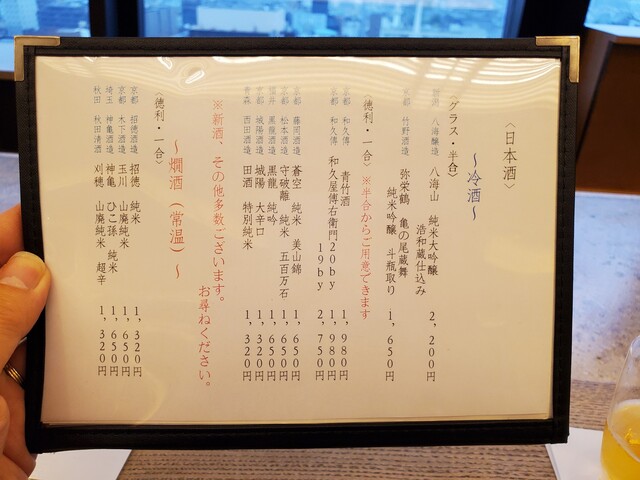 〈日本酒〉
〜冷酒〜
〈グラス・半合〉
新潟 八海醸造 八海山 純米大吟醸
浩和蔵仕込み 2,200円
京都 竹野酒造 弥栄鶴 亀の尾蔵舞
純米吟醸 斗瓶取り 1,650円
〈徳利・一合〉※半合からご用意できます
京都 和久傳 青竹酒 1,980円
京都 和久傳 和久屋傳右衛門20by 1,980円
19by 2,750円
京都 藤岡酒造 蒼空 純米 美山錦 1,650円
京都 松本酒造 守破離 純米 五百万石 1,650円
福井 黒龍酒造 黒龍 純吟 1,650円
京都 城陽酒造 城陽 大辛口 1,320円
青森 西田酒造 田酒 特別純米 1,320円
※新酒、その他多数ございます。
お尋ねください。
〜燗酒(常温)〜
〈徳利・一合〉
京都 招徳酒造 招徳 純米 1,320円
京都 木下酒造 玉川 山廃純米 1,650円
埼玉 神亀酒造 神亀 ひこ孫 純米 1,650円
秋田 秋田清酒 刈穂 山廃純米 超辛 1,320円